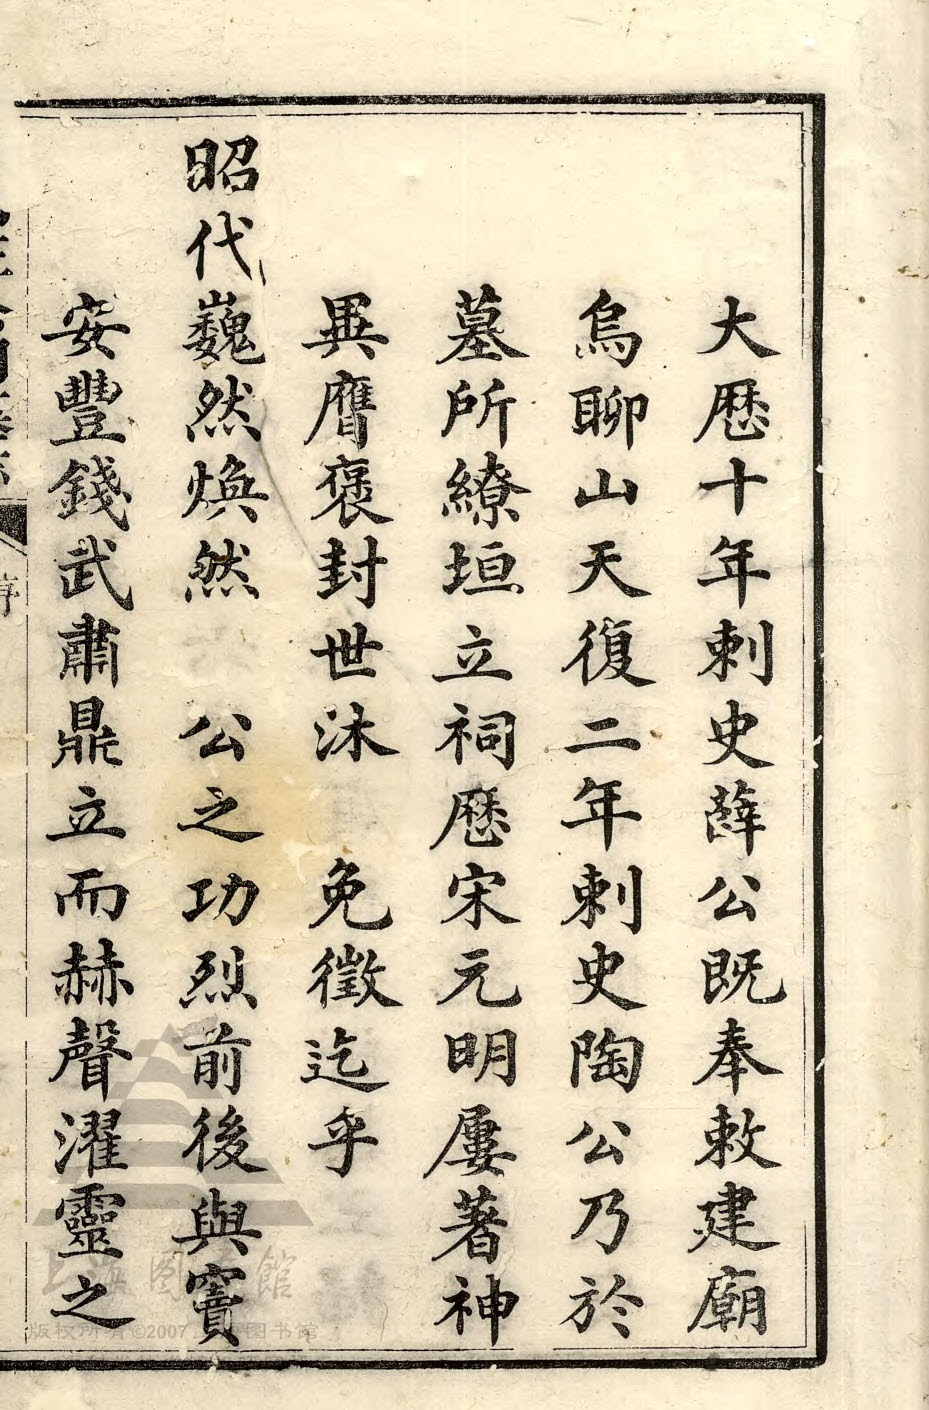 大歷十年刺史薛公既奉敕建廟
烏聊山天復二年刺史陶公乃於
墓所繚垣立祠歷宋元明屢著神
異膺褒封世沐　免徵迄乎
昭代巍然煥然　公之功烈前後與竇
安豐錢武肅鼎立而赫聲濯靈之
序
上海圖書館
版权所有©2007上海图书馆